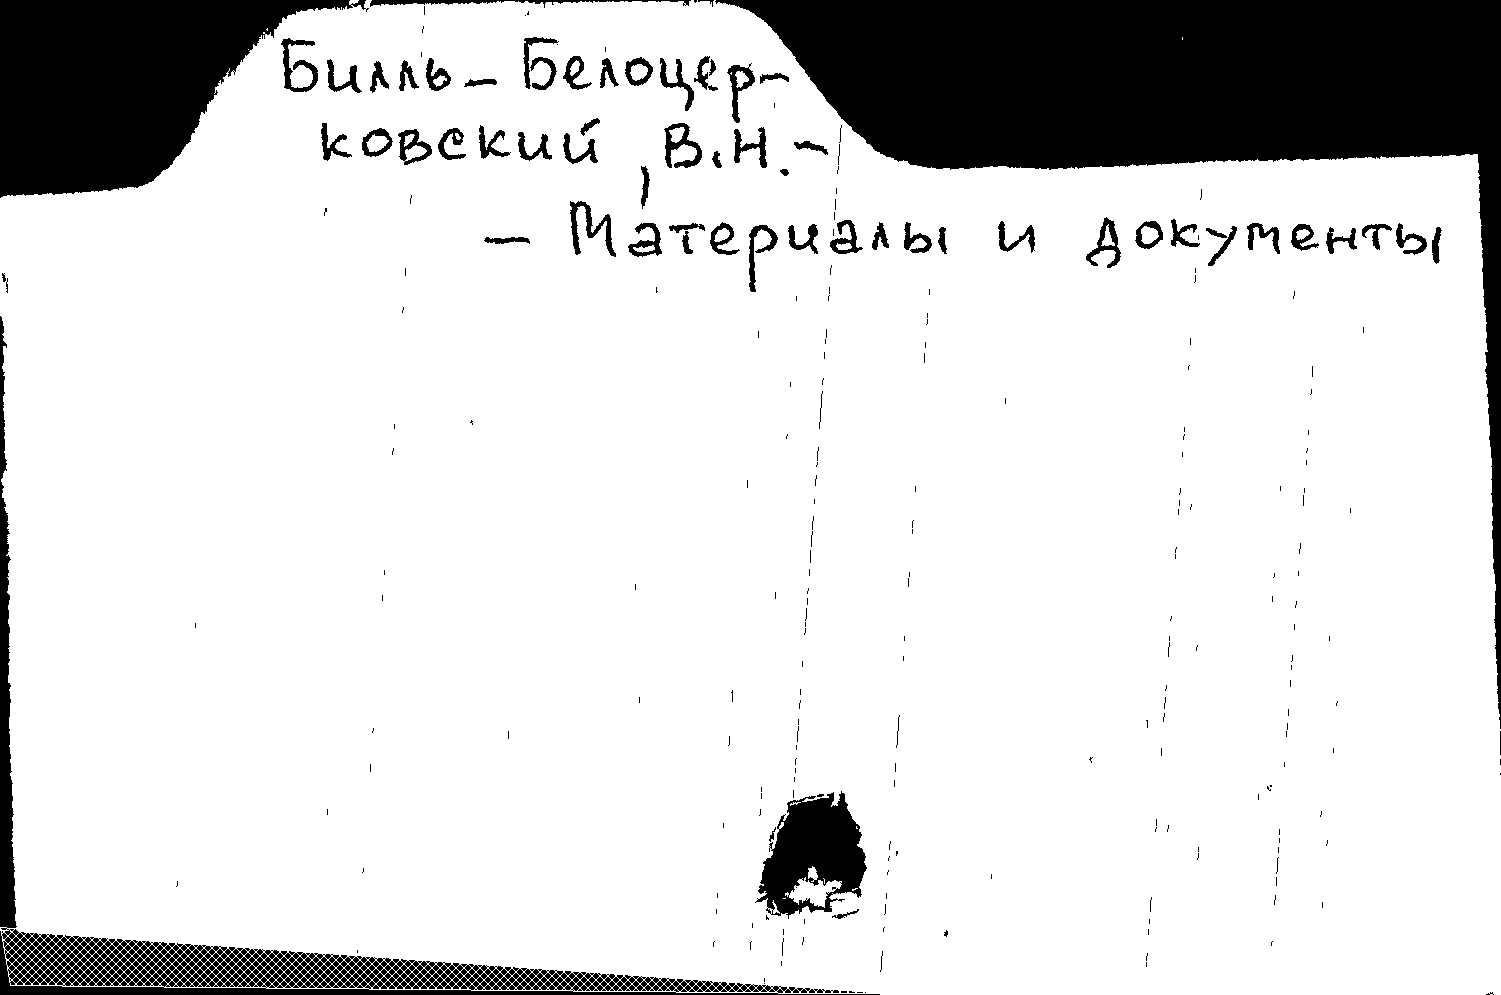 Билль-Белоцер-
ковский, В.Н.-
- Материалы и документы